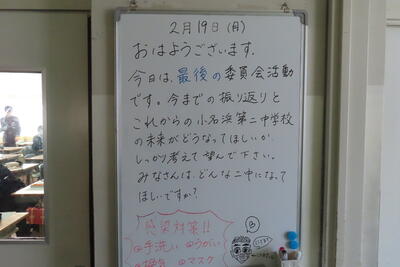 2月19日(月)
おはようございます。
今日は、最後の委員会活動
です。今までの振り返りと
これからの小名浜第二中学校
の未来がどうなってほしいか、
しっかり考えて望んで下さい。
みなさんは、どんな二中になって
ほしいですか?
感染対策!!
手洗い うがい
換気 マスク